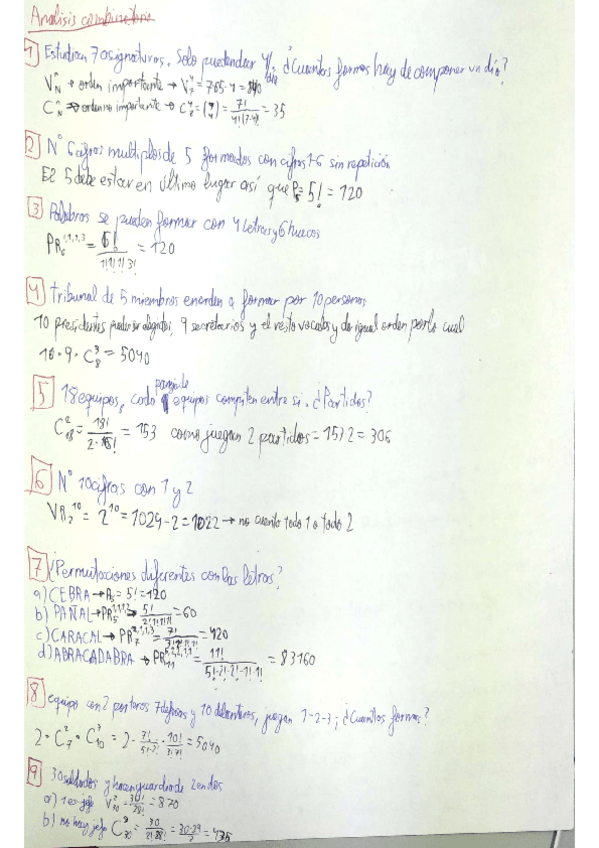 Analisis combinatorio
1 Estudian 7 asignaturas. Solo pueden dar 4/día ¿Cuantas formas hay de componer un día?
V_N^n → orden importante → V_7^4 = 7·6·5·4 = 840
C_N^n → orden no importante → C_7^4 = (7 4) = 7!/4!(7-4)! = 35
2 Nº 6 cifras multiplos de 5 formados con cifras 1-6 sin repetición
El 5 debe estar en último lugar así que P_5 = 5! = 120
3 Palabras se pueden formar con 4 letras y 6 huecos
PR_6^{1,1,1,3} = 6!/1!1!1!3! = 120
4 tribunal de 5 miembros a formar por 10 personas
10 presidentes pueden ser elegidos, 9 secretarios y el resto vocales y da igual orden por lo cual
10·9·C_8^3 = 5040
5 18 equipos, cada pareja de equipos compiten entre si. ¿Partidos?
C_18^2 = 18!/2·16! = 153 como juegan 2 partidos = 153·2 = 306
6 Nº 10 cifras con 1 y 2
VR_2^10 = 2^10 = 1024-2 = 1022 → no cuento todo 1 o todo 2
7 ¿Permutaciones diferentes con las letras?
a) CEBRA → P_5 = 5! = 120
b) PAÑAL → PR_5^{2,1,1,1} → 5!/2!1!1!1! = 60
c) CARACAL → PR_7 = 7! = 420
d) ABRACADABRA → PR_11^{5,2,2,1,1} = 11!/5!·2!·2!·1!·1! = 83160
8 equipo con 2 porteros 7 defensas y 10 delanteros, juegan 1-2-3; ¿Cuantas formas?
2·C_7^2·C_10^3 = 2·7!/5!·2!·10!/3!·7! = 5040
9 30 soldados y hacen guardia de 2 en dos
a) 1 es jefe V_30^2 = 30!/28! = 870
b) no hay jefe C_30^2 = 30/2!28! = 30·29/2 = 435